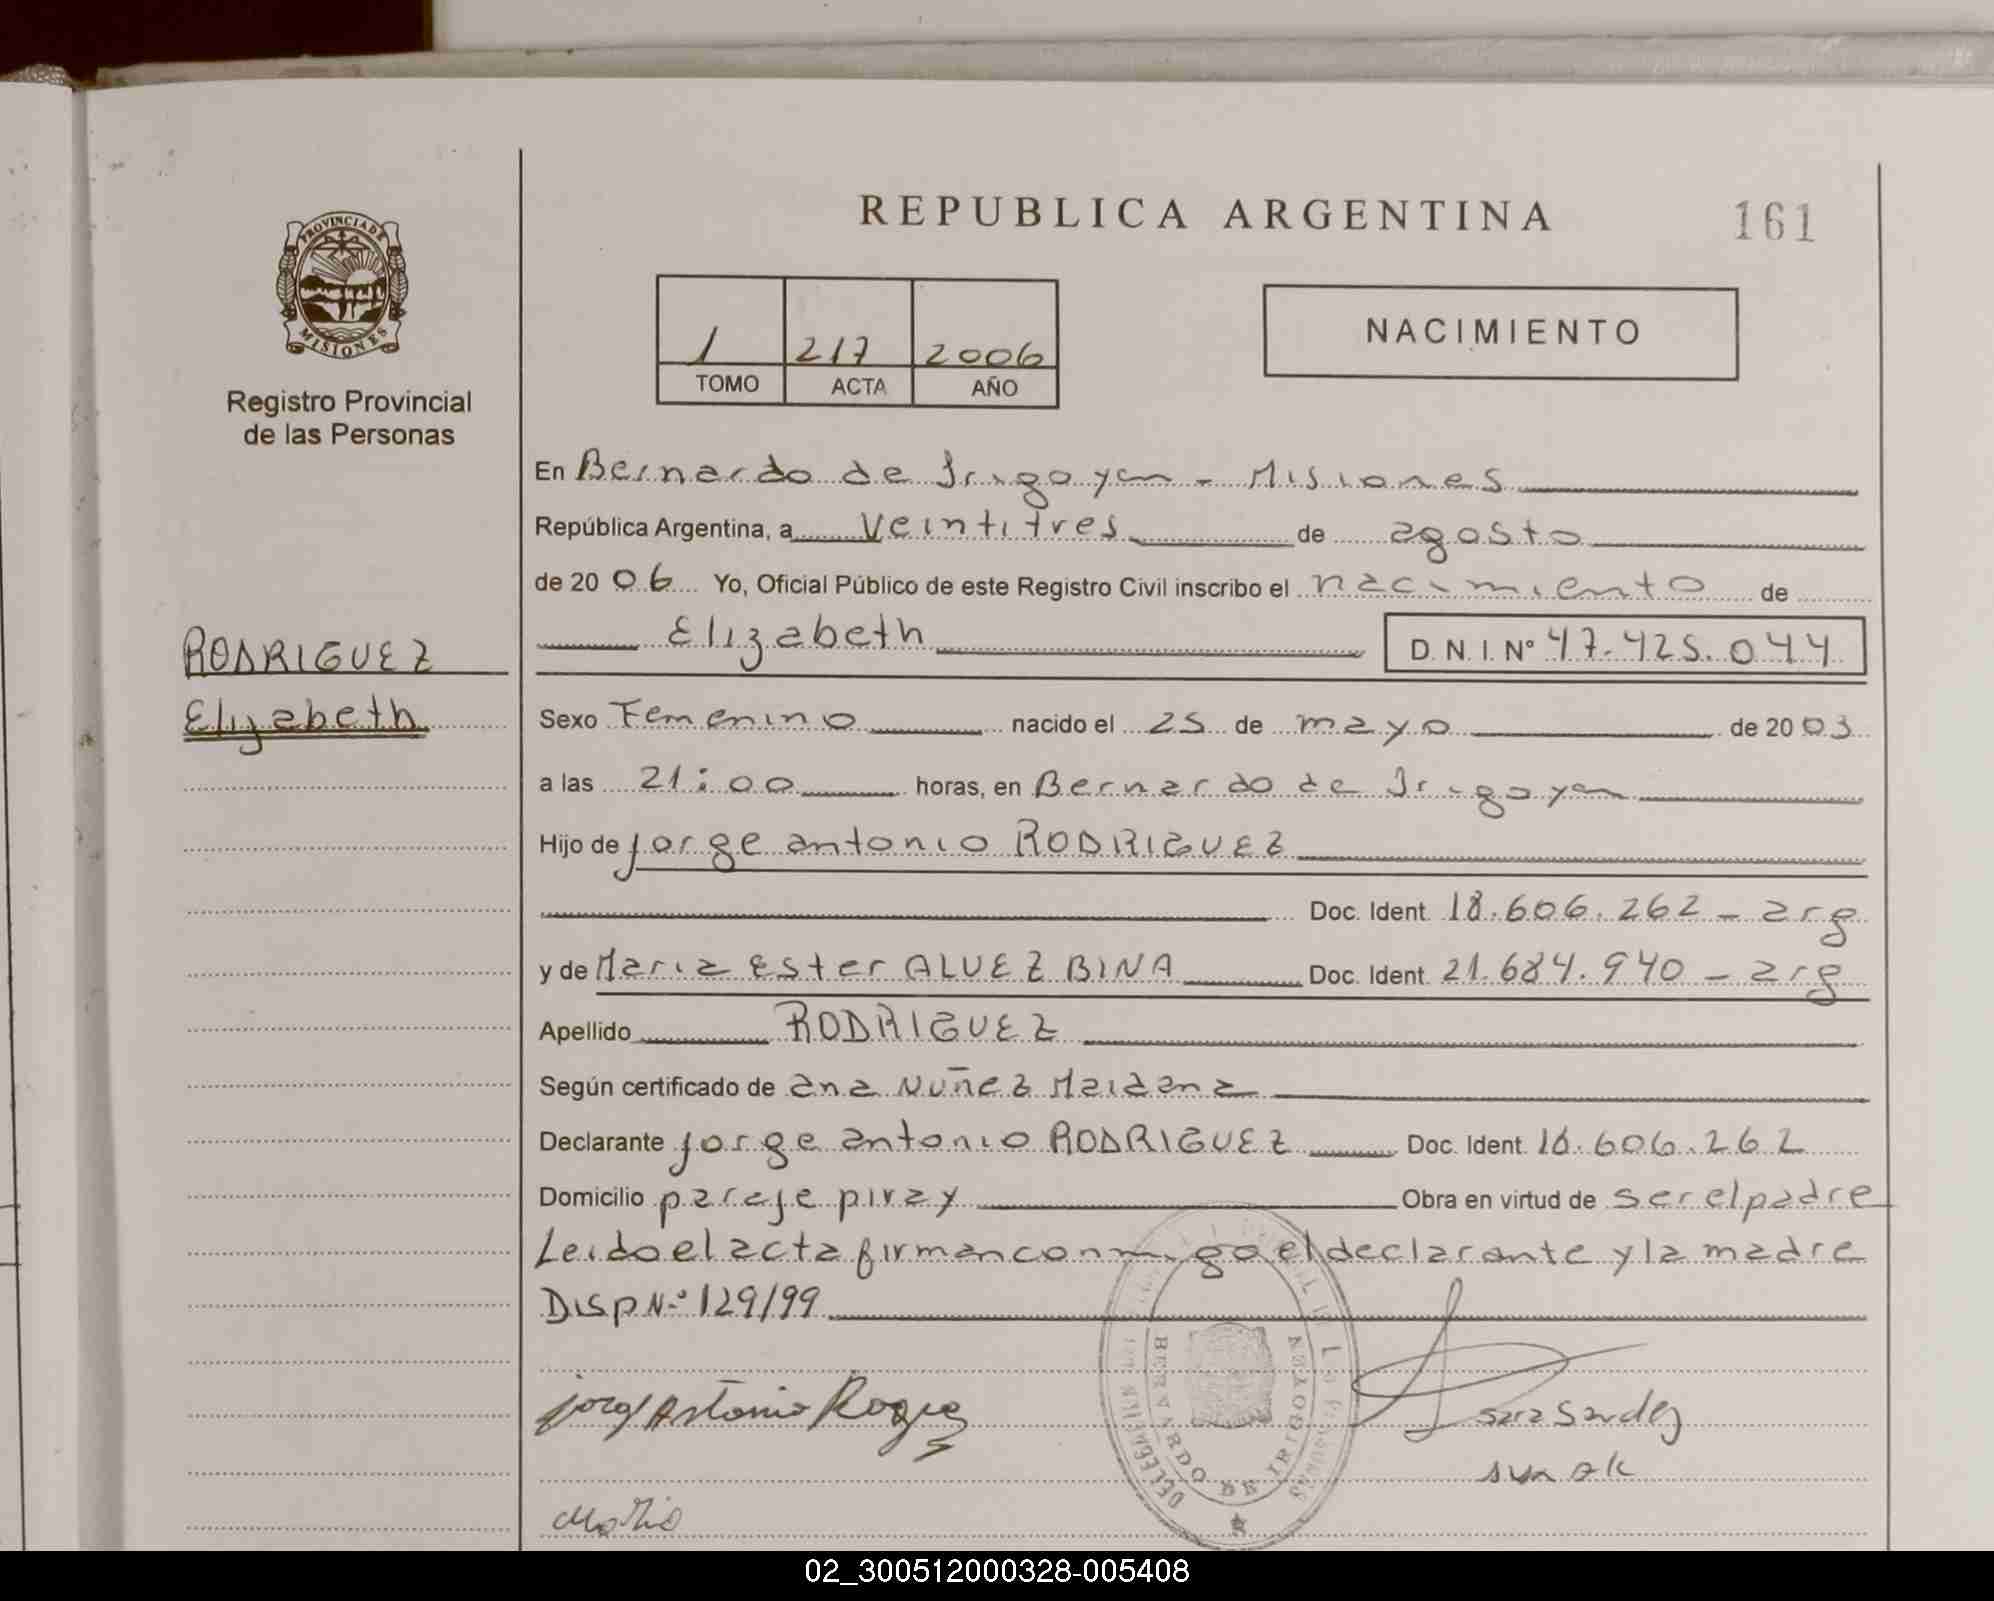 REPUBLICA ARGENTINA
161
PROVINCIA DE
MISIONES
Registro Provincial
de las Personas
1 217 2006
TOMO ACTA AÑO
NACIMIENTO
En Bernardo de Irigoyen - Misiones
República Argentina, a veintitres de agosto
de 2006 Yo, Oficial Público de este Registro Civil inscribo el nacimiento de
Elizabeth D.N.I. Nº 47.425.044
RODRIGUEZ
Elizabeth
Sexo Femenino nacido el 25 de mayo de 2003
a las 21:00 horas, en Bernardo de Irigoyen
Hijo de Jorge antonio RODRIGUEZ
Doc. Ident. 18.606.262 - arg
y de Maria Ester ALVEZ BINA Doc. Ident. 21.684.940 - arg
Apellido RODRIGUEZ
Según certificado de ana Nuñez Maidana
Declarante Jorge antonio RODRIGUEZ Doc. Ident. 18.606.262
Domicilio paraje piray Obra en virtud de ser el padre
Leido el acta firman conmigo el declarante y la madre
Disp N.º 129/99
BERNARDO DE IRIGOYEN
Antonio
Maria
02_300512000328-005408